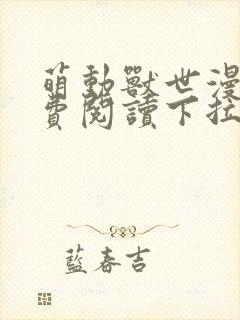 萌動獸世漫
費閱讀下拉
藍春吉